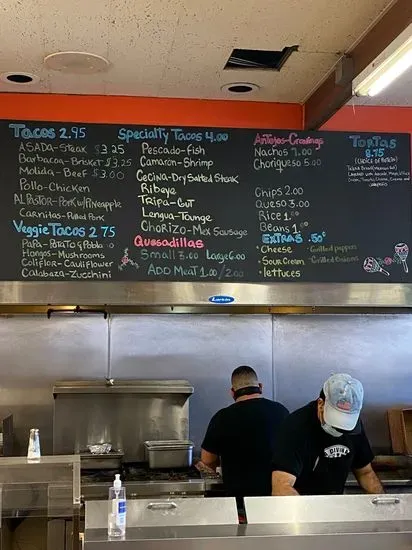 Tacos 2.95
ASADA-STEAK $3.25
Barbacoa-Brisket $3.25
Molida-Beef $3.00
Pollo-Chicken
AL PASTOR-Pork w/Pineapple
Carnitas-Pulled Pork
Veggie Tacos 2.75
PAPA-POTATO &
Hongos-Mushrooms
Coliflor-Cauliflower
Calabaza-Zucchini
Specialty Tacos 4.00
Pescado-Fish
Camaron-Shrimp
Cecina-Dry Salted Steak
Ribeye
Tripa-Gut
Lengua-Tounge
Chorizo-Mex Sausage
Quesadillas
Small 3.00 Large 6.00
ADD Meat 1.00/2.00
Antojos-Cravings
Nachos 7.00
Choriqueso 5.00
Chips 2.00
Queso 3.00
Rice 1.
Beans 1.
EXTRAS .50¢
Cheese
Grilled peppers
Sour Cream
Grilled Onions
lettuces
Tortas
8.75
(CHOICE OF PROTEIN)
Larkin